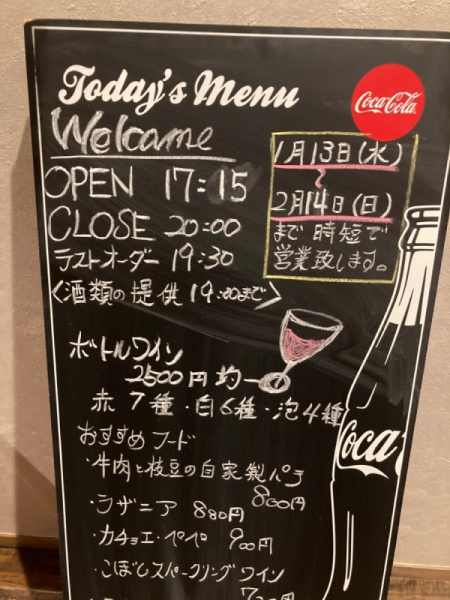 Today's Menu
Coca-Cola
Welcome
OPEN 17:15
CLOSE 20:00
ラストオーダー 19:30
〈酒類の提供19:00まで〉
1月13日(水)
〜
2月14日(日)
まで時短で
営業致します。
ボトルワイン
2500円均一
赤7種・白6種・泡4種
おすすめフード
・牛肉と枝豆の自家製パテ
800円
・ラザニア 880円
・カチョエ・ペペ 900円
・こぼしスパークリングワイン
Coca